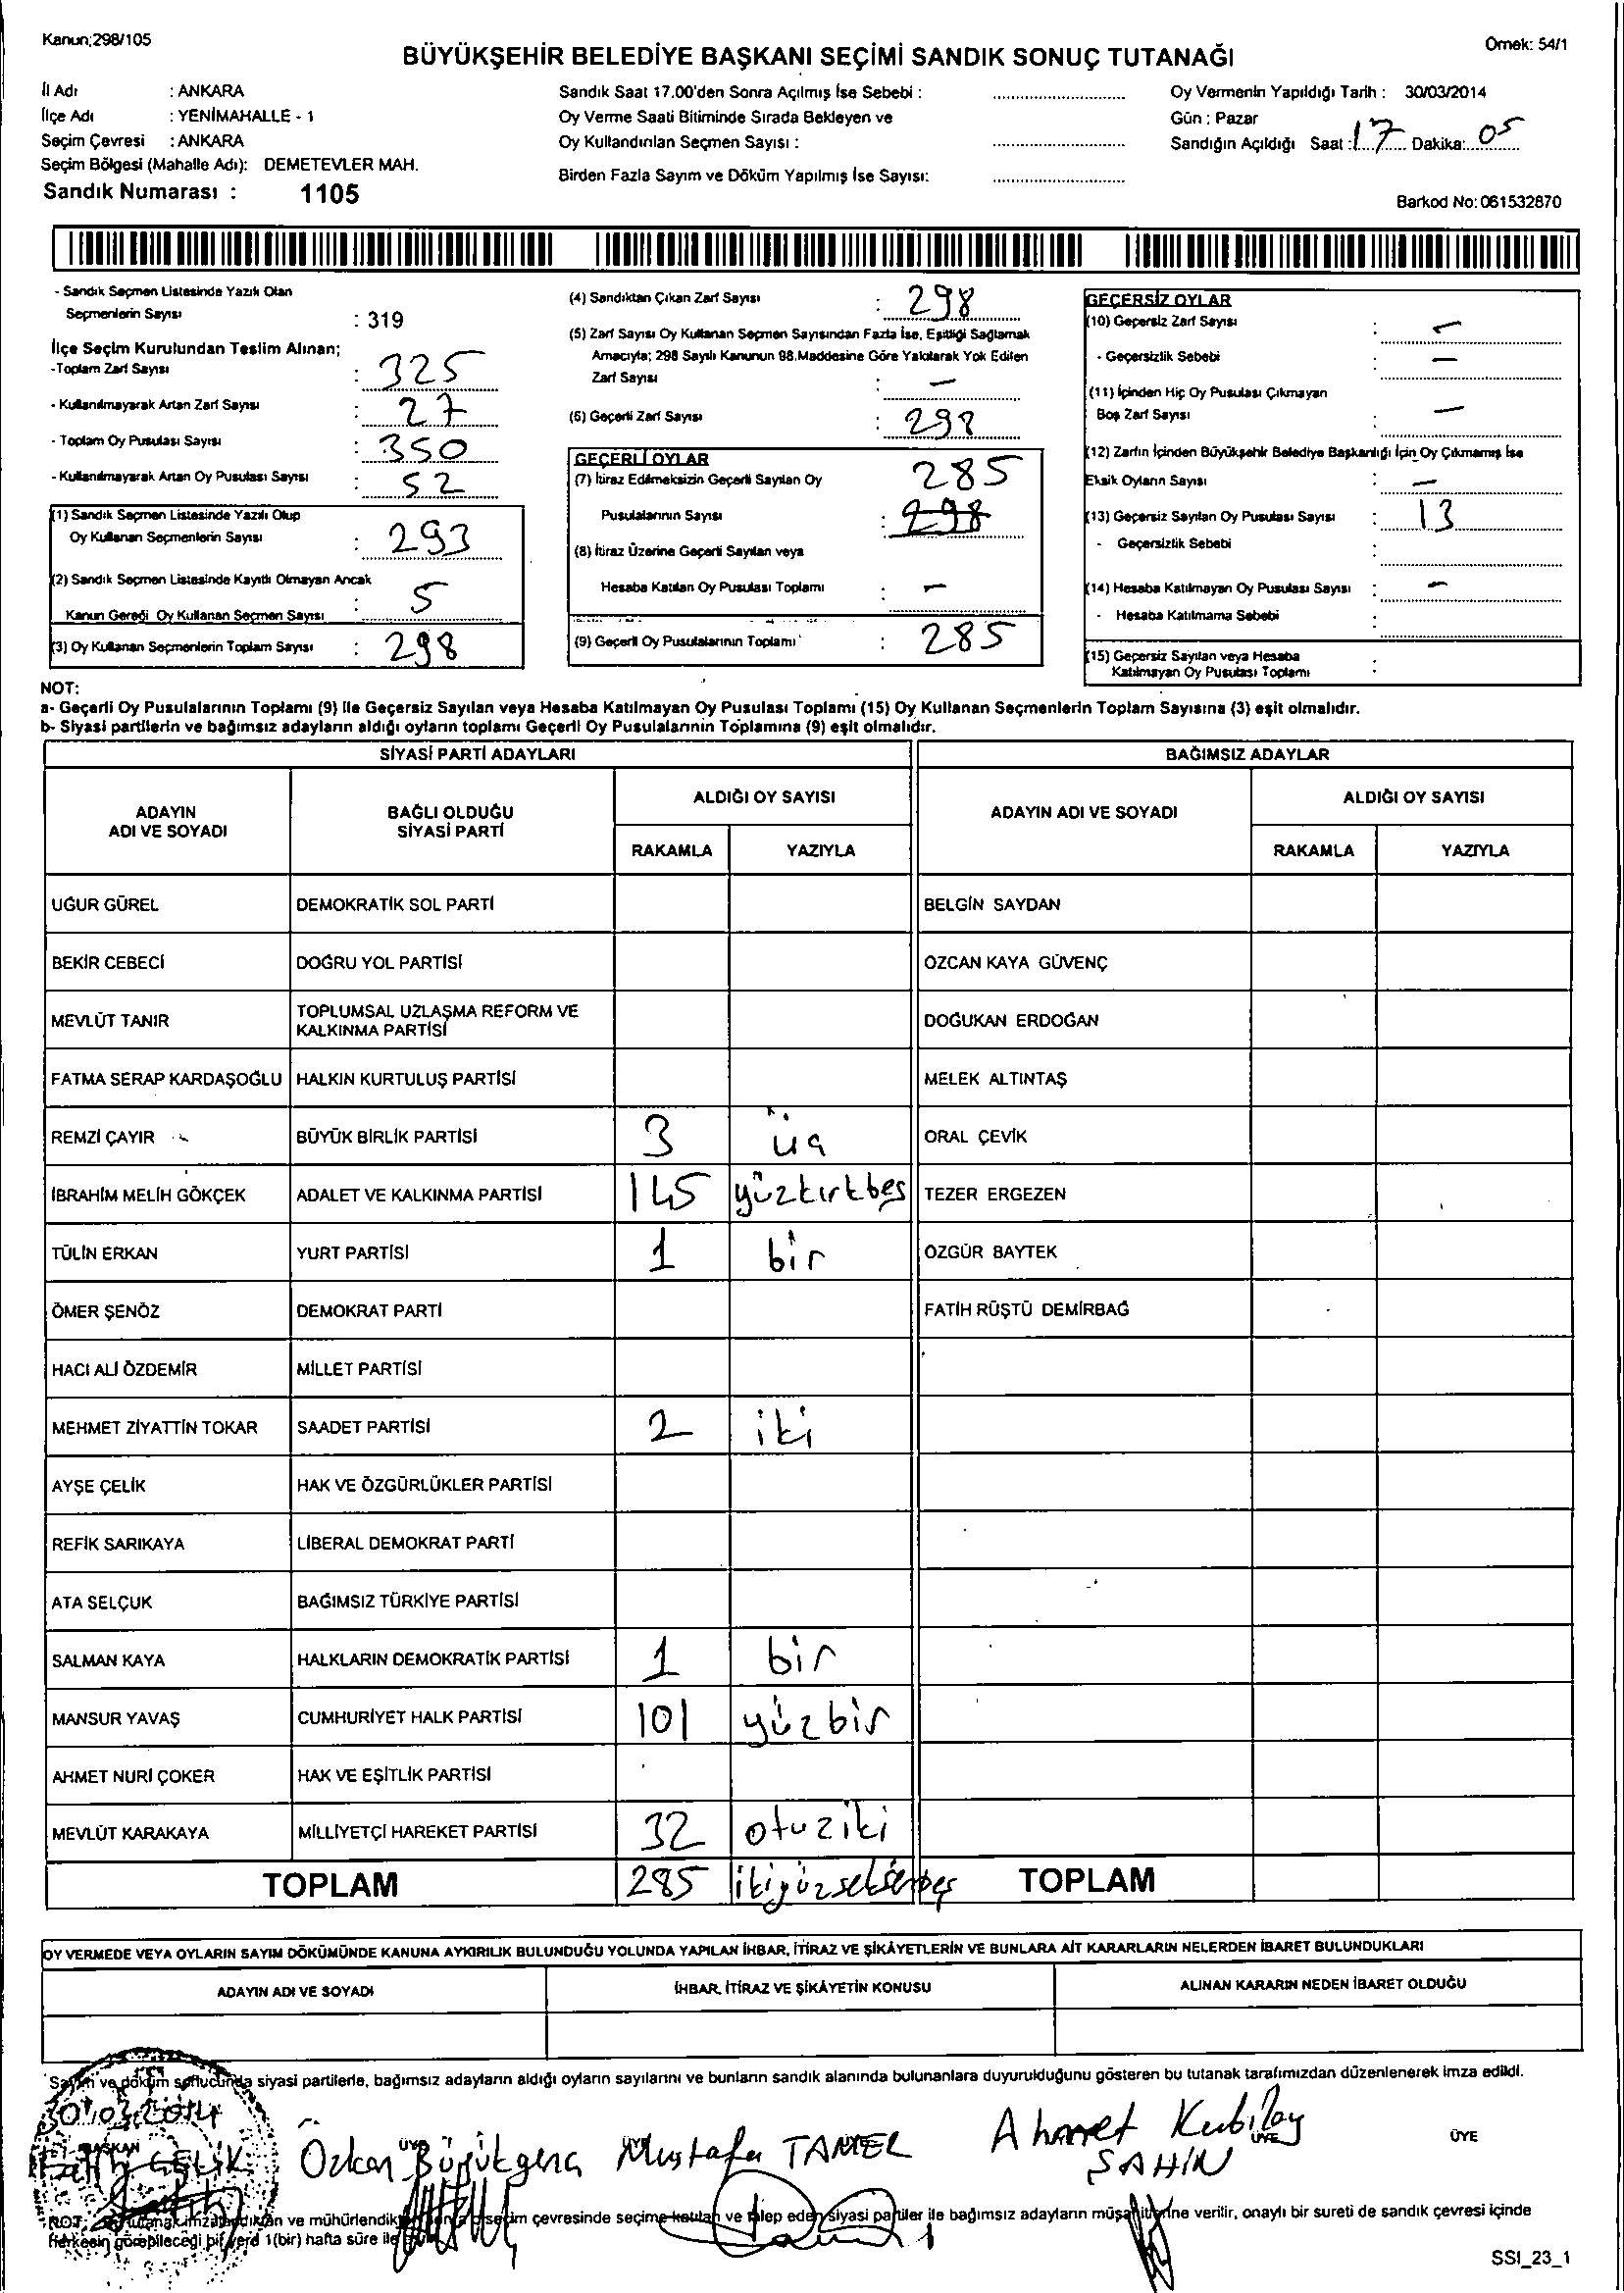 Kanun;298/105
Örnek: 54/1
BÜYÜKŞEHİR BELEDİYE BAŞKANI SEÇİMİ SANDIK SONUÇ TUTANAĞI
İl Adı : ANKARA
İlçe Adı : YENİMAHALLE - 1
Seçim Çevresi : ANKARA
Seçim Bölgesi (Mahalle Adı): DEMETEVLER MAH.
Sandık Numarası : 1105
Sandık Saat 17.00'den Sonra Açılmış İse Sebebi :
Oy Verme Saati Bitiminde Sırada Bekleyen ve
Oy Kullandırılan Seçmen Sayısı :
Birden Fazla Sayım ve Döküm Yapılmış İse Sayısı:
Oy Vermenin Yapıldığı Tarih : 30/03/2014
Gün : Pazar
Sandığın Açıldığı Saat : 17 Dakika: 05
Barkod No: 061532870
- Sandık Seçmen Listesinde Yazılı Olan
Seçmenlerin Sayısı : 319
İlçe Seçim Kurulundan Teslim Alınan;
-Toplam Zarf Sayısı : 325
- Kullanılmayarak Artan Zarf Sayısı : 27
- Toplam Oy Pusulası Sayısı : 350
- Kullanılmayarak Artan Oy Pusulası Sayısı : 52
(1) Sandık Seçmen Listesinde Yazılı Olup
Oy Kullanan Seçmenlerin Sayısı : 293
(2) Sandık Seçmen Listesinde Kayıtlı Olmayan Ancak
Kanun Gereği Oy Kullanan Seçmen Sayısı : 5
(3) Oy Kullanan Seçmenlerin Toplam Sayısı : 298
(4) Sandıktan Çıkan Zarf Sayısı : 298
(5) Zarf Sayısı Oy Kullanan Seçmen Sayısından Fazla İse, Eşitliği Sağlamak
Amacıyla; 298 Sayılı Kanunun 98.Maddesine Göre Yakılarak Yok Edilen
Zarf Sayısı : -
(6) Geçerli Zarf Sayısı : 298
GEÇERLİ OYLAR
(7) İtiraz Edilmeksizin Geçerli Sayılan Oy 285
Pusulalarının Sayısı : 298
(8) İtiraz Üzerine Geçerli Sayılan veya
Hesaba Katılan Oy Pusulası Toplamı : -
(9) Geçerli Oy Pusulalarının Toplamı : 285
GEÇERSİZ OYLAR
(10) Geçersiz Zarf Sayısı : -
- Geçersizlik Sebebi : -
(11) İçinden Hiç Oy Pusulası Çıkmayan
Boş Zarf Sayısı : -
(12) Zarfın İçinden Büyükşehir Belediye Başkanlığı İçin Oy Çıkmamış İse
Eksik Oyların Sayısı : -
(13) Geçersiz Sayılan Oy Pusulası Sayısı : 13
- Geçersizlik Sebebi :
(14) Hesaba Katılmayan Oy Pusulası Sayısı : -
- Hesaba Katılmama Sebebi :
(15) Geçersiz Sayılan veya Hesaba
Katılmayan Oy Pusulası Toplamı :
NOT:
a- Geçerli Oy Pusulalarının Toplamı (9) İle Geçersiz Sayılan veya Hesaba Katılmayan Oy Pusulası Toplamı (15) Oy Kullanan Seçmenlerin Toplam Sayısına (3) eşit olmalıdır.
b- Siyasi partilerin ve bağımsız adayların aldığı oyların toplamı Geçerli Oy Pusulalarının Toplamına (9) eşit olmalıdır.
SİYASİ PARTİ ADAYLARI BAĞIMSIZ ADAYLAR
ADAYIN ADI VE SOYADI
BAĞLI OLDUĞU SİYASİ PARTİ
ALDIĞI OY SAYISI
RAKAMLA YAZIYLA
ADAYIN ADI VE SOYADI
ALDIĞI OY SAYISI
RAKAMLA YAZIYLA
UĞUR GÜREL DEMOKRATİK SOL PARTİ BELGİN SAYDAN
BEKİR CEBECİ DOĞRU YOL PARTİSİ ÖZCAN KAYA GÜVENÇ
MEVLÜT TANIR TOPLUMSAL UZLAŞMA REFORM VE KALKINMA PARTİSİ DOĞUKAN ERDOĞAN
FATMA SERAP KARDAŞOĞLU HALKIN KURTULUŞ PARTİSİ MELEK ALTINTAŞ
REMZİ ÇAYIR BÜYÜK BİRLİK PARTİSİ 3 üç ORAL ÇEVİK
İBRAHİM MELİH GÖKÇEK ADALET VE KALKINMA PARTİSİ 145 yüzkırkbeş TEZER ERGEZEN
TÜLİN ERKAN YURT PARTİSİ 1 bir ÖZGÜR BAYTEK
ÖMER ŞENÖZ DEMOKRAT PARTİ FATİH RÜŞTÜ DEMİRBAĞ
HACI ALİ ÖZDEMİR MİLLET PARTİSİ
MEHMET ZİYATTİN TOKAR SAADET PARTİSİ 2 iki
AYŞE ÇELİK HAK VE ÖZGÜRLÜKLER PARTİSİ
REFİK SARIKAYA LİBERAL DEMOKRAT PARTİ
ATA SELÇUK BAĞIMSIZ TÜRKİYE PARTİSİ
SALMAN KAYA HALKLARIN DEMOKRATİK PARTİSİ 1 bir
MANSUR YAVAŞ CUMHURİYET HALK PARTİSİ 101 yüzbir
AHMET NURİ ÇOKER HAK VE EŞİTLİK PARTİSİ
MEVLÜT KARAKAYA MİLLİYETÇİ HAREKET PARTİSİ 32 otuziki
TOPLAM 285 ikiyüzseksenbeş TOPLAM
OY VERMEDE VEYA OYLARIN SAYIM DÖKÜMÜNDE KANUNA AYKIRILIK BULUNDUĞU YOLUNDA YAPILAN İHBAR, İTİRAZ VE ŞİKÂYETLERİN VE BUNLARA AİT KARARLARIN NELERDEN İBARET BULUNDUKLARI
ADAYIN ADI VE SOYADI İHBAR, İTİRAZ VE ŞİKÂYETİN KONUSU ALINAN KARARIN NEDEN İBARET OLDUĞU
Sayım ve döküm sonucunda siyasi partilerle, bağımsız adayların aldığı oyların sayılarını ve bunların sandık alanında bulunanlara duyurulduğunu gösteren bu tutanak tarafımızdan düzenlenerek imza edildi.
30.03.2014
BAŞKAN ÜYE ÜYE ÜYE ÜYE
Fatih ÇELİK Özkan Büyükgenç Mustafa TAMER Ahmet Kubilay ŞAHİN
NOT: tutanak imzalandıktan ve mühürlendik seçim çevresinde seçime katılan ve talep eden siyasi partiler ile bağımsız adayların müşahitlerine verilir, onaylı bir sureti de sandık çevresi içinde
herkesin görebileceği bir yerde 1(bir) hafta süre ile
SSI_23_1